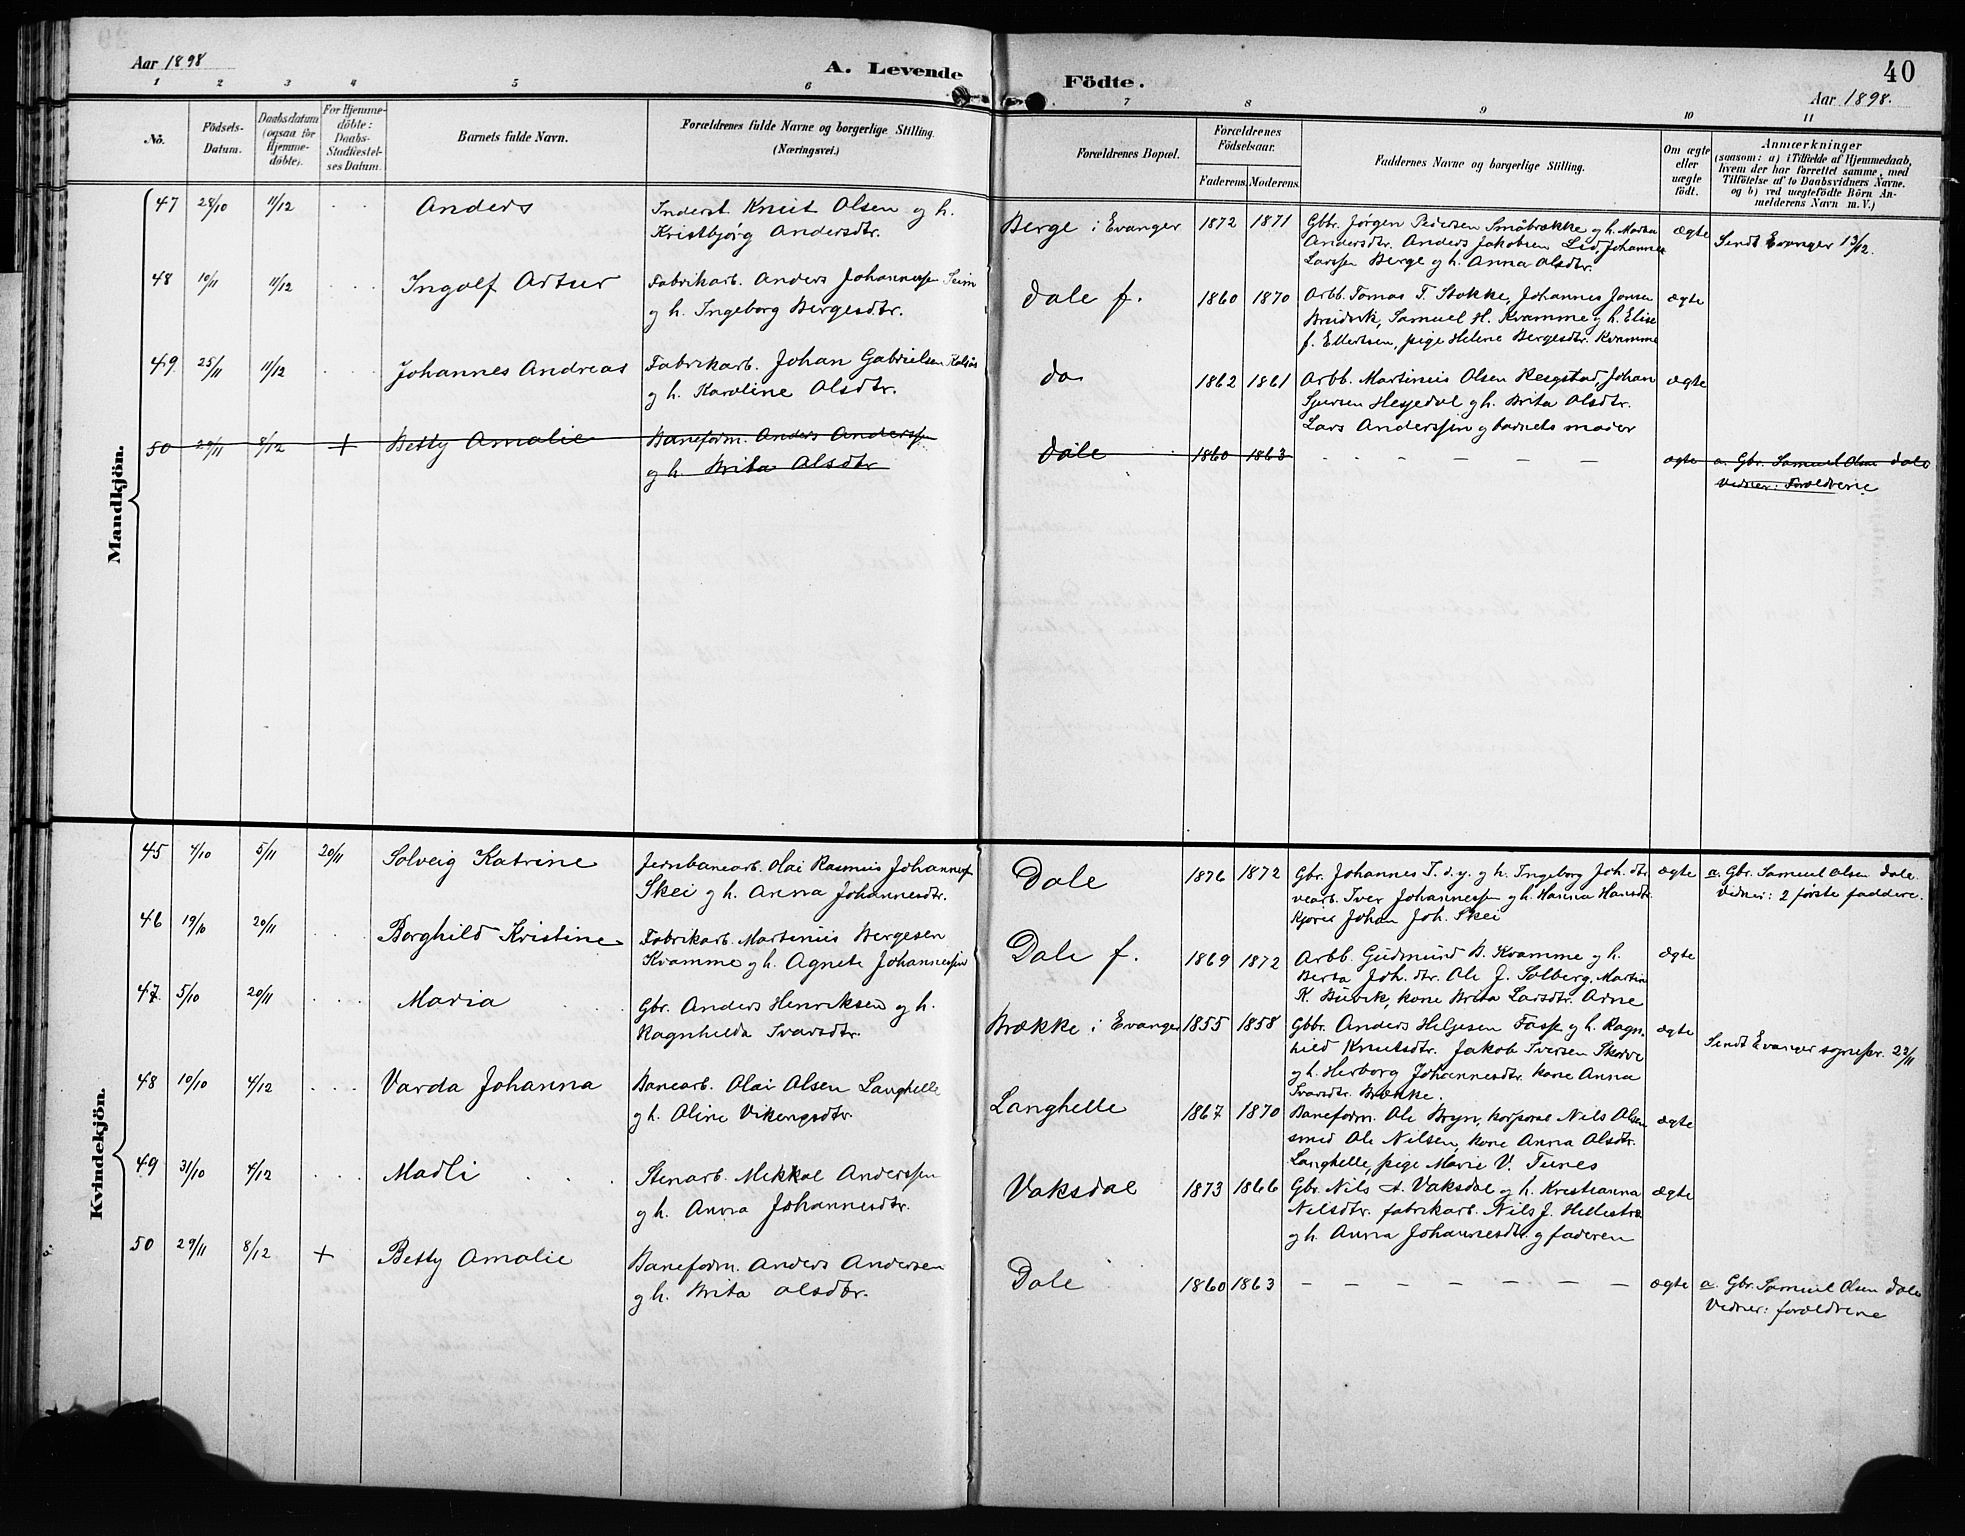 Aar 1898
A. Levende
Födte.
40
Aar 1898.
1 2 3 4 5 6 7 8 9 10 11
No.
Födsels-Datum.
Daabsdatum (ogsaa for Hjemmedöbte).
For Hjemmedöbte: Daabs-Stadfæstelses Datum.
Barnets fulde Navn.
Forældrenes fulde Navne og borgerlige Stilling.
(Næringsvei.)
Forældrenes Bopæl.
Forældrenes Födselsaar.
Faderens. Moderens.
Faddernes Navne og borgerlige Stilling.
Om ægte eller uægte födt.
Anmærkninger
(saasom: a) i Tilfælde af Hjemmedaab,
hvem der har forrettet samme, med
Tilföielse af to Daabsvidners Navne.
og b) ved uægtefödte Börn An-
melderens Navn m. V.)
Mandkjön.
47 28/10 11/12 Anders Inderst. Knut Olsen og h. Berge i Evanger 1872 1871 Gbr. Jørgen Pedersen Småbrække og h. Marta ægte Sendt Evanger 13/12.
Kristbjørg Andersdtr. Andersdtr. Anders Jakobsen Lid, Johannes
Larssen Berge og h. Anna Olsdtr.
48 10/11 11/12 Ingolf Artur Fabrikarb. Anders Johannessen Seim Dale f. 1860 1870 Arbb. Tomas T. Stokke, Johannes Jonsen ægte
og h. Ingeborg Bergesdtr. Breidvik, Samuel H. Kvamme og h. Elise
f. Ellertsen, pige Helene Bergesdtr. Kvamme
49 25/11 11/12 Johannes Andreas Fabrikarb. Johan Gabrielsen do 1862 1861 Arbb. Martinus Olsen Johan ægte
og h. Karoline Olsdtr. Sjursen Hesjedal og h. Brita Olsdtr.
Lars Anderssen og barnets moder
50 29/11 8/12 + Betty Amalie Baneform. Anders Anderssen Dale 1860 1863 – – – – – – ægte a. Gbr. Samuel Olsen Dale
og h. Brita Olsdtr Vidner: Forældrene
Kvindekjön.
45 4/10 5/11 20/11 Solveig Katrine Jernbanearb. Olai Rasmus Johannes. Dale 1876 1872 Gbr. Johannes T. d.y. og h. Ingeborg Joh.dtr. ægte a. Gbr. Samuel Olsen Dale.
Skei og h. Anna Johannesdtr. vearb. Iver Johannessen og h. Hanna Hansdtr. Vidner: 2 første faddere.
Kjører Johan Joh. Skei
46 19/10 20/11 Borghild Kristine Fabrikarb. Martinus Bergesen Dale f. 1869 1872 Arbb. Gudmund B. Kvamme og h. ægte
Kvamme og h. Agnete Johannessen Berta Joh.dtr. Ole J. Solberg, Martin
K. Buvik, kone Brita Larsdtr. Arne
47 5/10 20/11 Maria Gbr. Anders Henriksen og h. Brække i Evanger 1855 1858 Gbbr. Anders Helgesen Fosse og h. Ragn- ægte Sendt Evanger sognepr. 22/11
Ragnhilda Ivarsdtr. hild Knutsdtr. Jakob Iversen Skorve
og h. Herborg Johannesdtr. kone Anna
Ivarsdtr. Brække.
48 10/10 4/12 Varda Johanna Banearb. Olai Olsen Langhelle Langhelle 1867 1870 Baneform. Ole Bryn, korporal Nils Olsen ægte
og h. Oline Vikingsdtr. smed Ole Nilsen, kone Anna Olsdtr.
Langhelle, pige Marie V. Tunes
49 31/10 4/12 Madli Stenarb. Mikkal Anderssen Vaksdal 1873 1866 Gbr. Nils A. Vaksdal og h. Kristianna ægte
og h. Anna Johannesdtr. Nilsdtr. fabrikarb. Nils J. Hellestræ
og h. Anna Johannesdtr. og faderen
50 29/11 8/12 + Betty Amalie Baneform. Anders Andersen Dale 1860 1863 – – – – – – – – ægte a. Gbr. Samuel Olsen Dale
og h. Brita Olsdtr. Vidner: forældrene